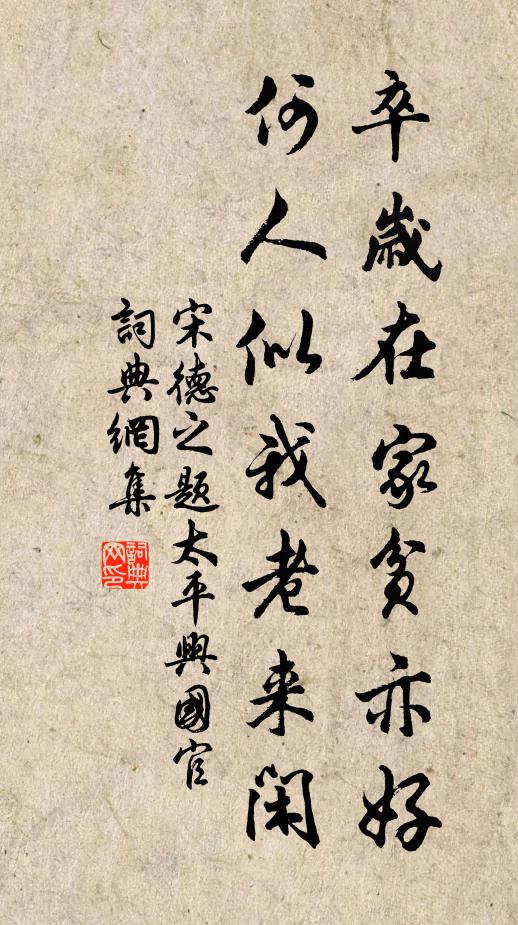 卒歲在家貧亦好
何人似我老来閑
宋德之題太平興國宫
詞典網集
詞典网印